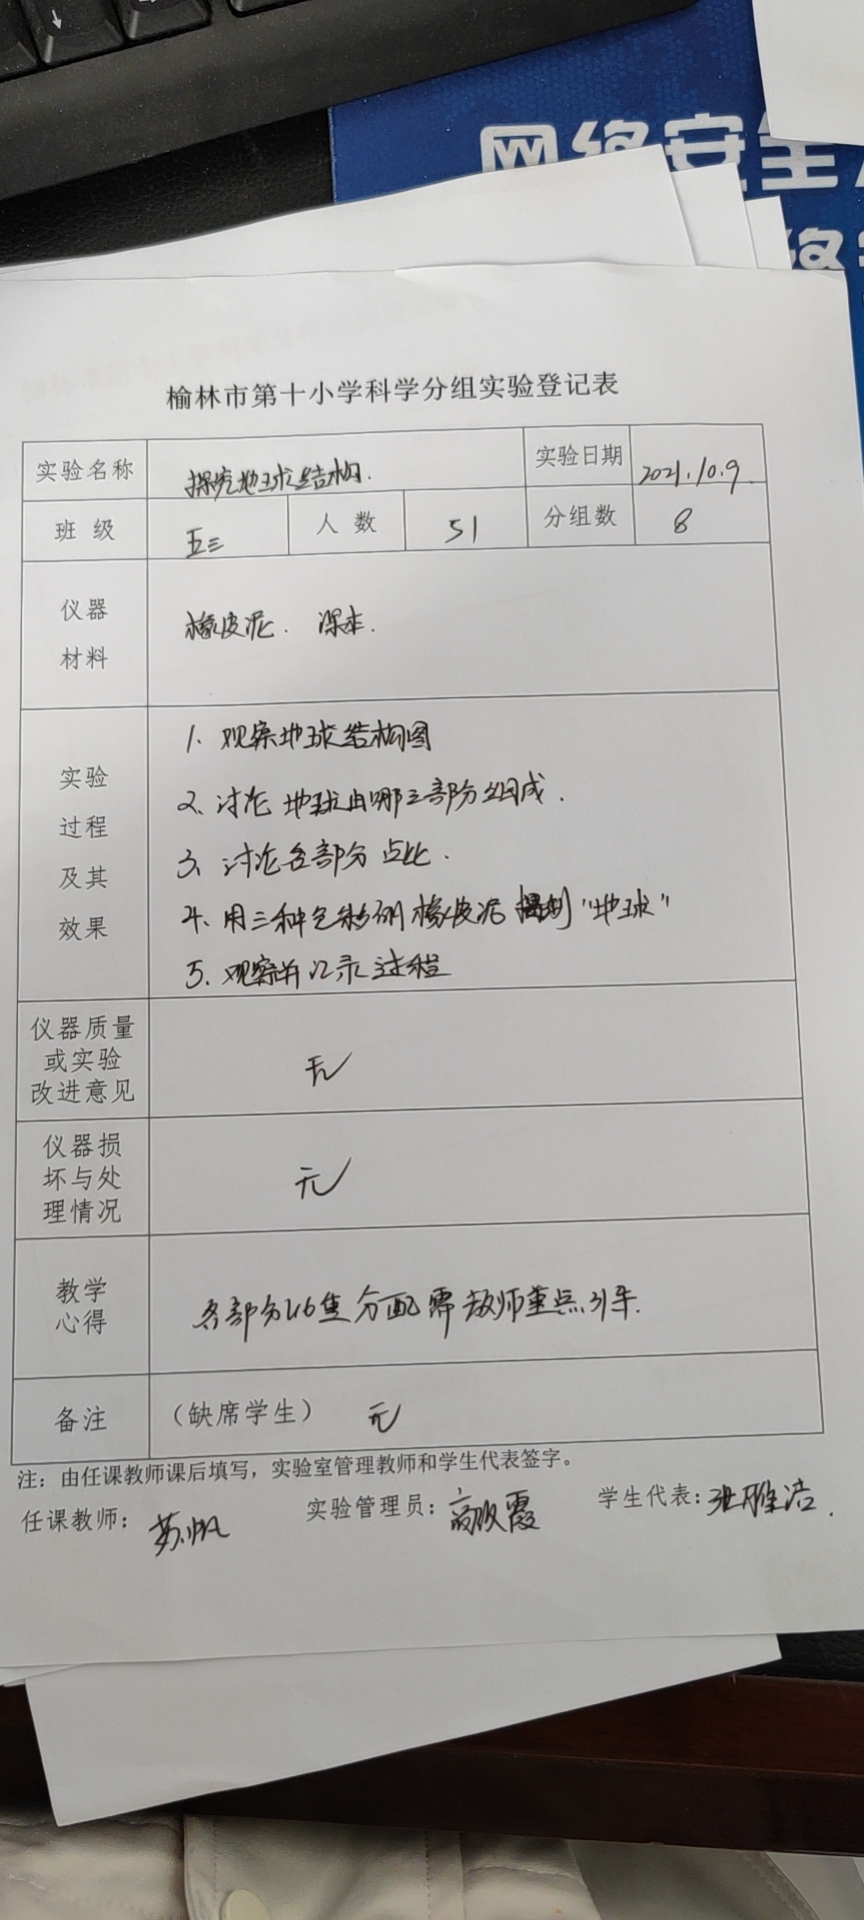 网络安全
络安
榆林市第十小学科学分组实验登记表
实验名称 探究地球结构. 实验日期 2021.10.9.
班 级 五三 人 数 51 分组数 8
仪器
材料
橡皮泥. 课本.
实验
过程
及其
效果
1. 观察地球结构图
2. 讨论 地球由哪三部分组成.
3. 讨论各部分占比.
4. 用三种 橡皮泥 "地球"
5. 观察并记录过程
仪器质量
或实验
改进意见
无
仪器损
坏与处
理情况
无
教学
心得
各部分比重分配需教师重点引导.
备注 (缺席学生) 无
注：由任课教师课后填写，实验室管理教师和学生代表签字。
任课教师： 苏帆 实验管理员： 高 霞 学生代表： 张雅洁.